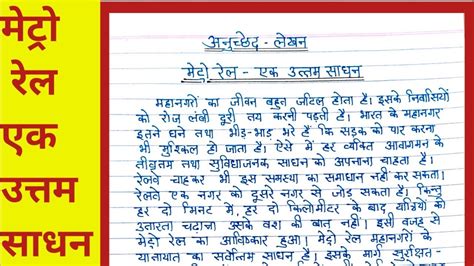 मेट्रो
रेल
एक
उत्तम
साधन
अनुच्छेद - लेखन
मेट्रो रेल - एक उत्तम साधन
महानगरों का जीवन बहुत जटिल होता है। इसके निवासियों
को रोज लंबी दूरी तय करनी पड़ती है। भारत के महानगर
इतने घने तथा भीड़-भाड़ भरे हैं कि सड़क को पार करना
भी मुश्किल हो जाता है। ऐसे में हर व्यक्ति आवागमन के
तीव्रतम तथा सुविधाजनक साधन को अपनाना चाहता है।
रेलवे चाहकर भी इस समस्या का समाधान नहीं कर सकता।
रेलवे एक नगर को दूसरे नगर से जोड़ सकता है। किन्तु
हर दो मिनट में, हर दो किलोमीटर के बाद यात्रियों को
उतारना चढ़ाना उसके वश की बात नहीं। इसी वजह से
मेट्रो रेल का आविष्कार हुआ। मेट्रो रेल महानगरों के
यातायात का सर्वोत्तम साधन है। इसके मार्ग सुरक्षित-